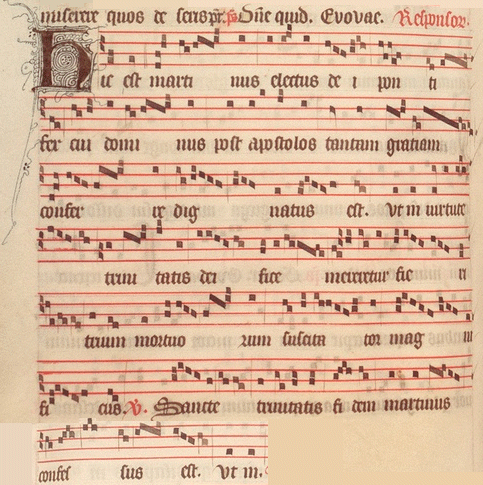 miserere quos de Dñe quid. Evovae. Responsor.
Hic est marti nus electus de i pon ti
fex cui domi nus post apostolos tantam gratiam
confer re dig natus est. Vt in virtute
trini tatis dei fice meretur fie ri
trium mortuo rum suscita tor mag ni
fi cus. V. Sancte trinitatis fi dem martinus
confes sus est. Vt in.